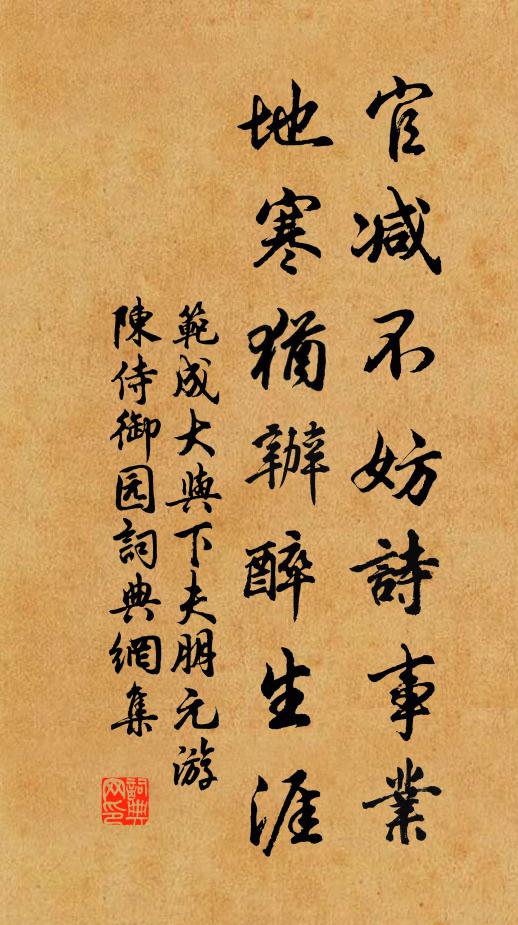 官减不妨詩事業
地寒猶辦醉生涯
範成大與下夫朋元游
陳侍御园詞典網集
詞典
网印